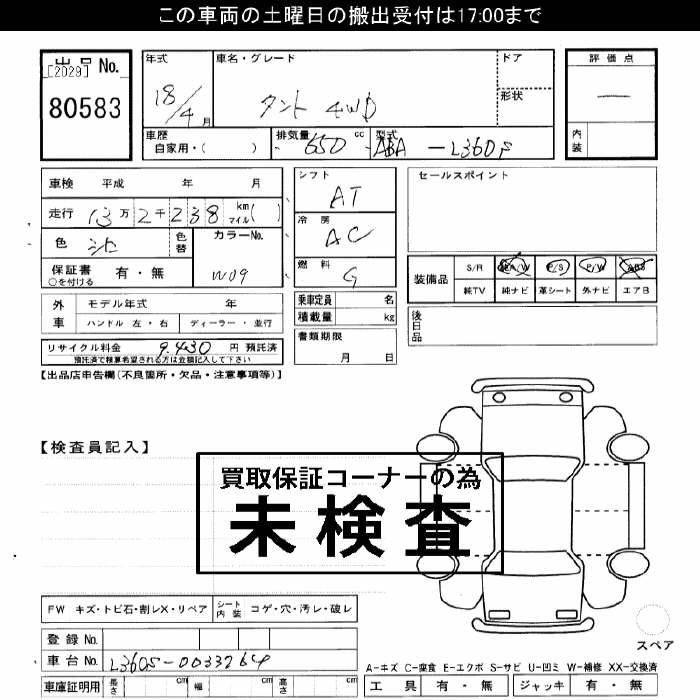 この車両の土曜日の搬出受付は17:00まで
出品 No.
[2029]
80583
年式 18/4 月
車名・グレード タント 4WD
ドア
形状
評価点 —
内装
車歴 自家用・( )
排気量 650 cc
型式 ABA -L360S
車検 平成 年 月
走行 13 万 2 千 238 km マイル( )
色 シロ
色替
カラーNo. W09
保証書 有・無
○を付ける
シフト AT
冷房 AC
燃料 G
セールスポイント
装備品 S/R 純A/W P/S P/W ABS
純TV 純ナビ 革シート 外ナビ エアB
外車 モデル年式 年
ハンドル 左・右 ディーラー・並行
乗車定員 名
積載量 kg
後日品
リサイクル料金 9,430 円 預託済
預託済で積算希望される方は金額記入して下さい
書類期限 月 日
【出品店申告欄(不良箇所・欠品・注意事項等)】
【検査員記入】
買取保証コーナーの為
未検査
FW キズ・トビ石・割レX・リペア
シート内装 コゲ・穴・汚レ・破レ
登録 No.
車台 No. L360S-0033264
スペア
A-キズ C-腐食 E-エクボ S-サビ U-凹ミ W-補修 XX-交換済
車庫証明用 長さ cm 幅 cm 高さ cm
工具 有・無 ジャッキ 有・無